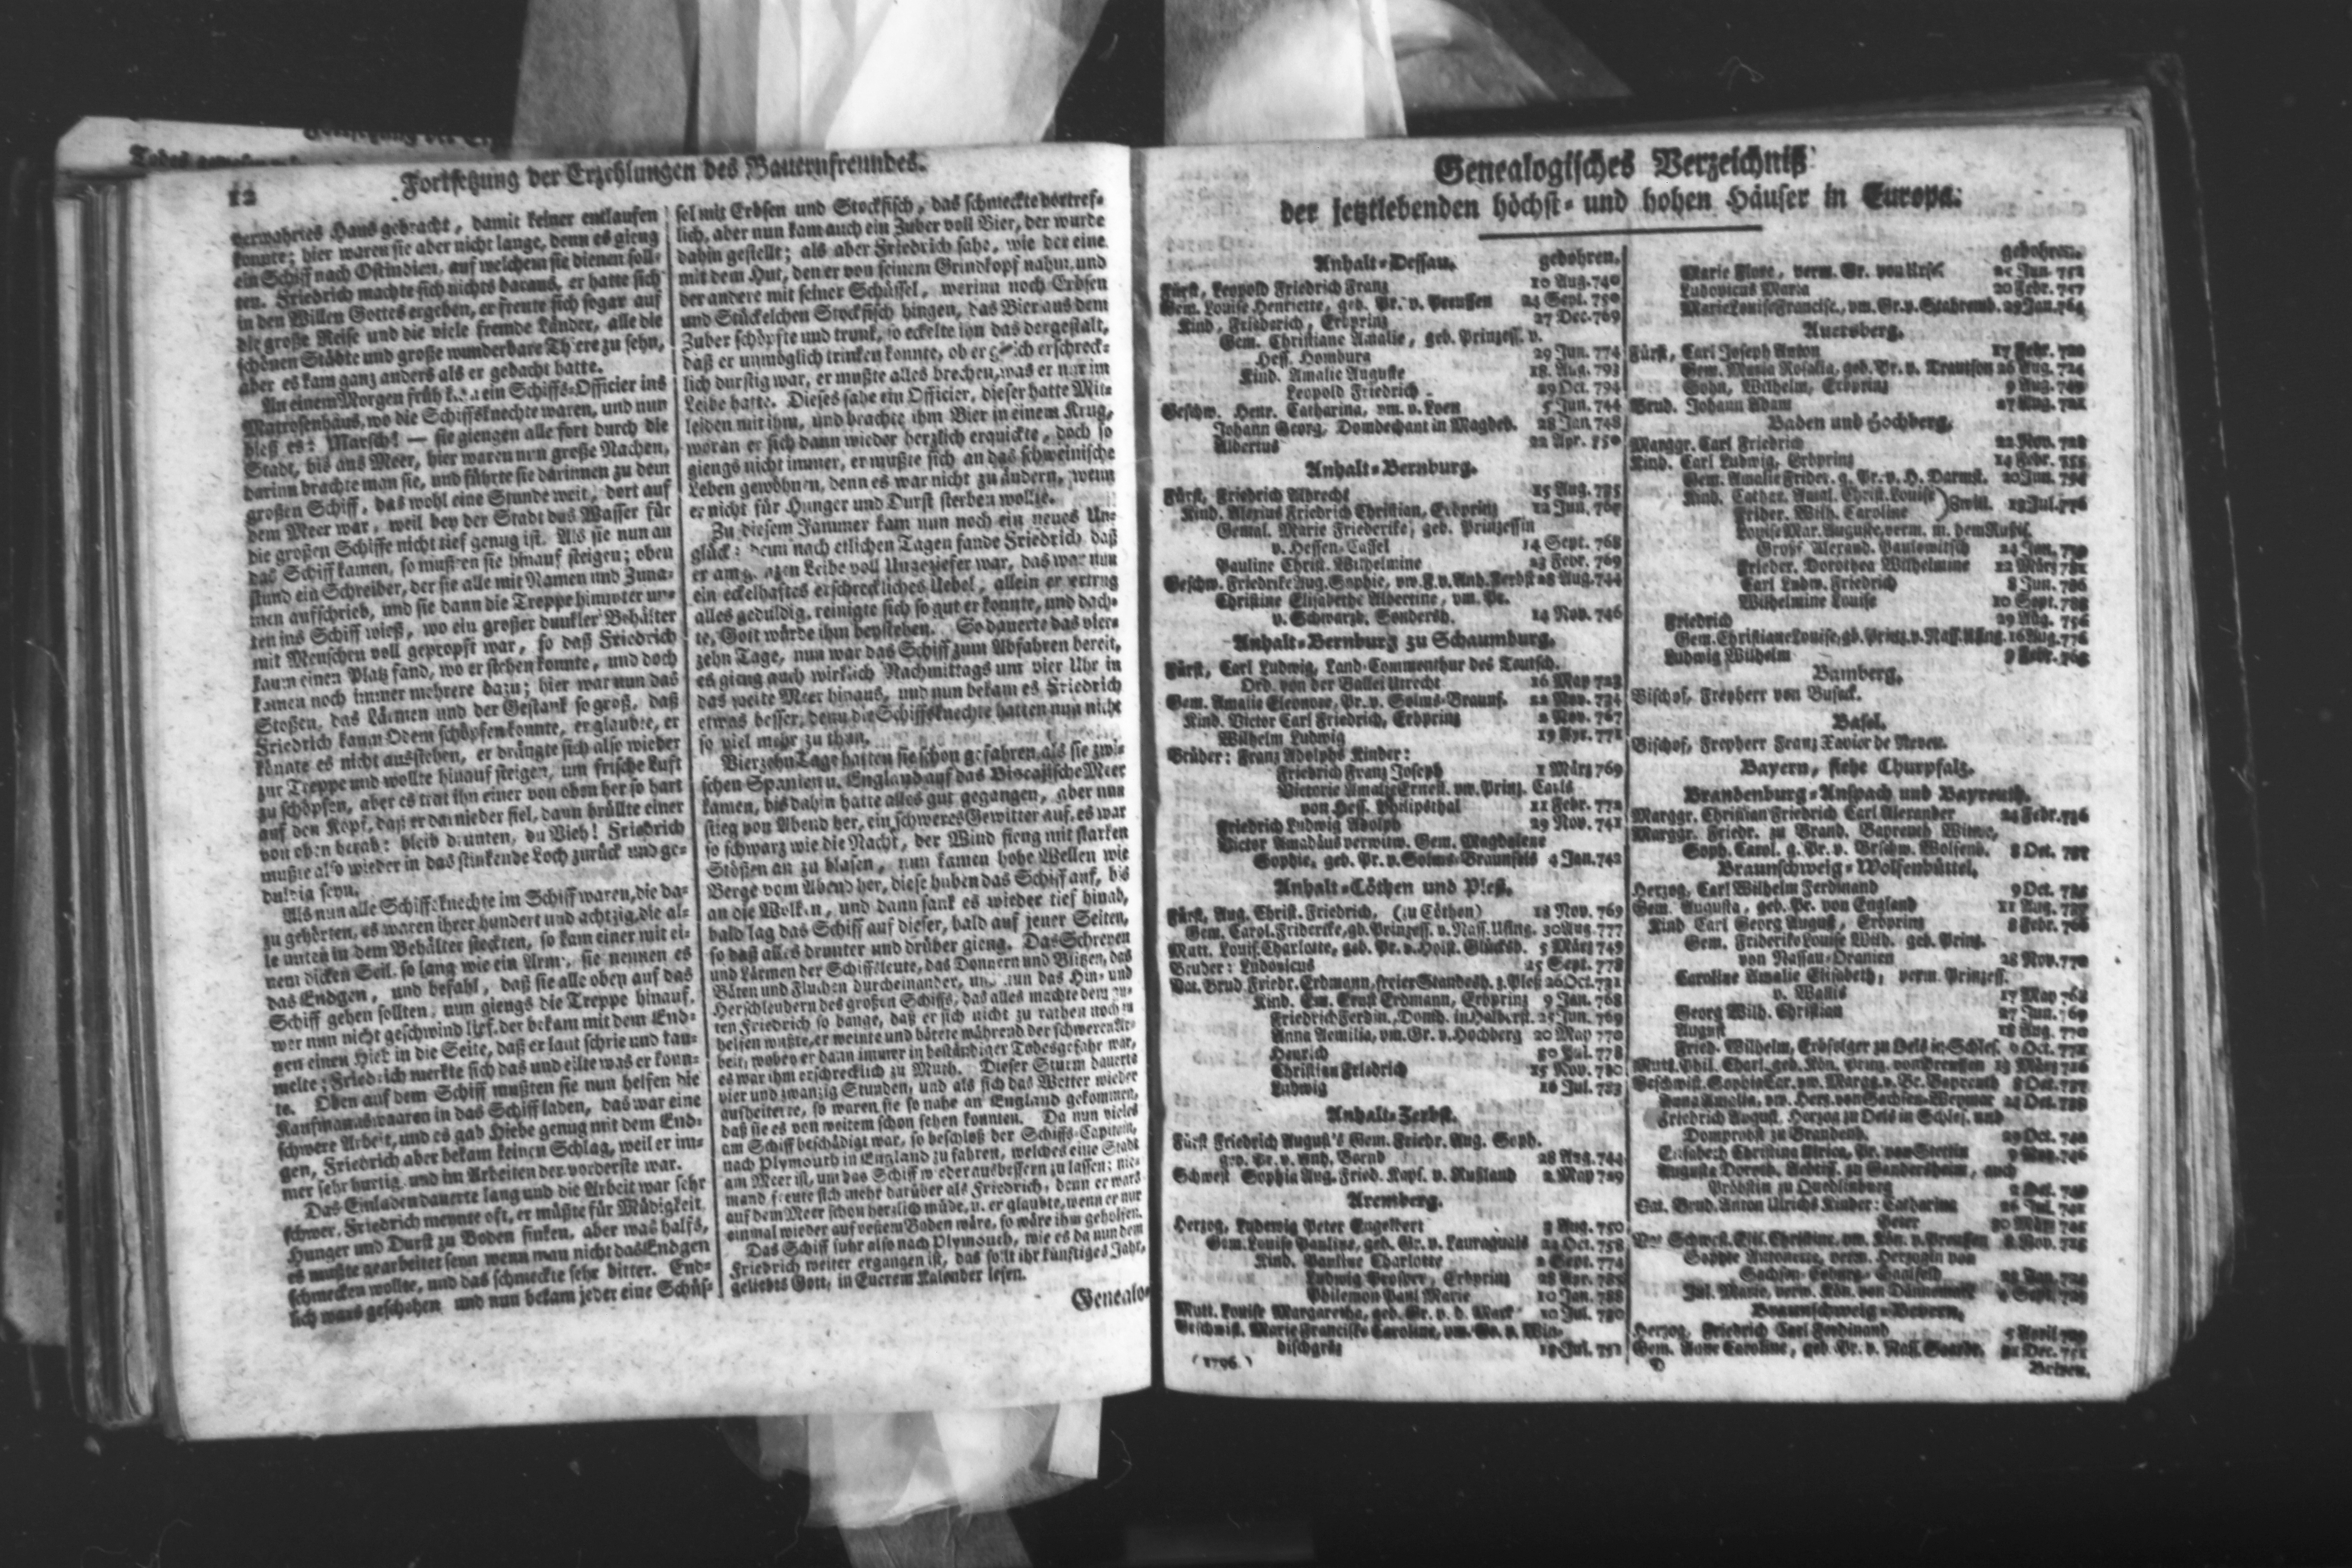 12
Fortsetzung der Erzehlungen des Bauernfreundes.
verwahrtes Haus gebracht, damit keiner entlaufen
konnte; hier waren sie aber nicht lange, denn es gieng
ein Schiff nach Ostindien, auf welchem sie dienen soll-
ten. Friedrich machte sich nichts daraus, er hatte sich
in den Willen Gottes ergeben, er freute sich sogar auf
die große Reise und die viele fremde Länder, alle die
schönen Städte und große wunderbare Thiere zu sehn,
aber es kam ganz anders als er gedacht hatte.
An einem Morgen früh kam ein Schiffs-Officier ins
Matrosenhaus, wo die Schiffsknechte waren, und nun
hieß es: Marsch! — sie giengen alle fort durch die
Stadt, bis ans Meer, hier waren nun große Nachen,
darinn brachte man sie, und führte sie darinnen zu dem
großen Schiff, das wohl eine Stunde weit, dort auf
dem Meer war, weil bey der Stadt das Wasser für
die großen Schiffe nicht tief genug ist. Als sie nun an
das Schiff kamen, so mußten sie hinauf steigen; oben
stund ein Schreiber, der sie alle mit Namen und Zuna-
men aufschrieb, und sie dann die Treppe hinunter un-
ten ins Schiff wieß, wo ein großer dunkler Behälter
mit Menschen voll gepropft war, so daß Friedrich
kaum einen Platz fand, wo er stehen konnte, und doch
kamen noch immer mehrere dazu; hier war nun das
Stoßen, das Lärmen und der Gestank so groß, daß
Friedrich kaum Odem schöpfen konnte, er glaubte, er
könnte es nicht ausstehen, er drängte sich also wieder
zur Treppe und wollte hinauf steigen, um frische Luft
zu schöpfen, aber es trat ihn einer von oben her so hart
auf den Kopf, daß er darnieder fiel, dann brüllte einer
von oben herab: bleib drunten, du Vieh! Friedrich
mußte also wieder in das stinkende Loch zurück und ge-
duldig seyn.
Als nun alle Schiffsknechte im Schiff waren, die da-
zu gehörten, es waren ihrer hundert und achtzig, die al-
le unten in dem Behälter steckten, so kam einer mit ei-
nem dicken Seil, so lang wie ein Arm, sie nennen es
das Endgen, und befahl, daß sie alle oben auf das
Schiff gehen sollten, nun giengs die Treppe hinauf,
wer nun nicht geschwind lief, der bekam mit dem End-
gen einen Hieb in die Seite, daß er laut schrie und tau-
melte; Friedrich merkte sich das und eilte was er konn-
te. Oben auf dem Schiff mußten sie nun helfen die
Kaufmannswaaren in das Schiff laden, das war eine
schwere Arbeit, und es gab Hiebe genug mit dem End-
gen, Friedrich aber bekam keinen Schlag, weil er im-
mer sehr hurtig und im Arbeiten der vorderste war.
Das Einladen dauerte lang und die Arbeit war sehr
schwer. Friedrich meynte oft, er müßte für Müdigkeit,
Hunger und Durst zu Boden sinken, aber was halfs,
es mußte gearbeitet seyn wenn man nicht das Endgen
schmecken wollte, und das schmeckte sehr bitter. End-
lich wars geschehen und nun bekam jeder eine Schüs-
sel mit Erbsen und Stockfisch, das schmeckte vortref-
lich, aber nun kam auch ein Zuber voll Bier, der wurde
dahin gestellt; als aber Friedrich sahe, wie der eine
mit dem Hut, den er von seinem Grindkopf nahm, und
der andere mit seiner Schüssel, worinn noch Erbsen
und Stückelchen Stockfisch hingen, das Bier aus dem
Zuber schöpfte und trunk, so eckelte ihn das dergestalt,
daß er unmöglich trinken konnte, ob er gleich erschreck-
lich durstig war, er mußte alles brechen, was er nur im
Leibe hatte. Dieses sahe ein Officier, dieser hatte Mit-
leiden mit ihm, und brachte ihm Bier in einem Krug,
woran er sich dann wieder herzlich erquickte, doch so
giengs nicht immer, er mußte sich an das schweinische
Leben gewöhnen, denn es war nicht zu ändern, wenn
er nicht für Hunger und Durst sterben wollte.
Zu diesem Jammer kam nun noch ein neues Un-
glück: denn nach etlichen Tagen fande Friedrich daß
er am ganzen Leibe voll Ungeziefer war, das war nun
ein eckelhaftes erschreckliches Uebel, allein er ertrug
alles geduldig, reinigte sich so gut er konnte, und dach-
te, Gott würde ihm beystehen. So dauerte das vier-
zehn Tage, nun war das Schiff zum Abfahren bereit,
es gieng auch würklich Nachmittags um vier Uhr in
das weite Meer hinaus, und nun bekam es Friedrich
etwas besser, denn die Schiffsknechte hatten nun nicht
so viel mehr zu thun.
Vierzehn Tage hatten sie schon gefahren, als sie zwi-
schen Spanien u. England auf das Biscajische Meer
kamen, bis dahin hatte alles gut gegangen, aber nun
stieg von Abend her, ein schweres Gewitter auf, es war
so schwarz wie die Nacht, der Wind fieng mit starken
Stößen an zu blasen, nun kamen hohe Wellen wie
Berge vom Abend her, diese huben das Schiff auf, bis
an die Wolken, und dann sank es wieder tief hinab,
bald lag das Schiff auf dieser, bald auf jener Seiten,
so daß alles drunter und drüber gieng. Das Schreyen
und Lärmen der Schiffsleute, das Donnern und Blitzen, das
Bäten und Fluchen durcheinander, und nun das Hin- und
Herschleudern des großen Schiffs, das alles machte dem gu-
ten Friedrich so bange, daß er sich nicht zu rathen noch zu
helfen wußte, er weinte und bätete während der schweren Ar-
beit; wobey er dann immer in beständiger Todesgefahr war,
es war ihm erschrecklich zu Muth. Dieser Sturm dauerte
vier und zwanzig Stunden, und als sich das Wetter wieder
aufheiterte, so waren sie so nahe an England gekommen,
daß sie es von weitem schon sehen konnten. Da nun vieles
am Schiff beschädigt war, so beschloß der Schiffs-Capitein,
nach Plymouth in England zu fahren, welches eine Stadt
am Meer ist, um das Schiff wieder ausbessern zu lassen; nie-
mand freute sich mehr darüber als Friedrich, denn er wars
auf dem Meer schon herzlich müde, u. er glaubte, wenn er nur
einmal wieder auf vestem Boden wäre, so wäre ihm geholfen.
Das Schiff fuhr also nach Plymouth, wie es da nun dem
Friedrich weiter ergangen ist, das sollt ihr künftiges Jahr,
geliebts Gott, in Eurem Kalender lesen.
Genealo-
Genealogisches Verzeichniß
der jetztlebenden höchst- und hohen Häuser in Europa.
Anhalt-Dessau. gebohren.
Fürst, Leopold Friedrich Franz 10 Aug. 740
Gem. Louise Henriette, geb. Pr. v. Preussen 24 Sept. 750
Kind, Friederich, Erbprinz 27 Dec. 769
Gem. Christiane Amalie, geb. Prinzess. v.
Hess. Homburg 29 Jun. 774
Kind. Amalie Auguste 18. Aug. 793
Leopold Friedrich 29 Oct. 794
Geschw. Henr. Catharina, vm. v. Loen 5 Jun. 744
Johann Georg, Domdechant in Magdeb. 28 Jan 748
Albertus 22 Apr. 750
Anhalt-Bernburg.
Fürst, Friedrich Albrecht 15 Aug. 735
Kind. Alexius Friedrich Christian, Erbprinz 12 Jun. 767
Gemal. Marie Friederike, geb. Prinzessin
v. Hessen-Cassel 14 Sept. 768
Pauline Christ. Wilhelmine 23 Febr. 769
Geschw. Friedrike Aug. Sophie, vw. F. v. Anh. Zerbst 28 Aug. 744
Christine Elisabethe Albertine, vm. Pr.
v. Schwarzb. Sondersh. 14 Nov. 746
Anhalt-Bernburg zu Schaumburg.
Fürst, Carl Ludwig, Land-Commenthur des Teutsch.
Ord. von der Ballei Utrecht 16 May 723
Gem. Amalie Eleonore, Pr. v. Solms-Braunf. 22 Nov. 734
Kind. Victor Carl Friedrich, Erbprinz 2 Nov. 767
Wilhelm Ludwig 19 Apr. 771
Brüder: Franz Adolphs Kinder:
Friedrich Franz Joseph 1 März 769
Victorie Amalie Ernest. vm. Prinz. Carls
von Hess. Philipsthal 11 Febr. 772
Friedrich Ludwig Adolph 29 Nov. 741
Victor Amadäus verwitw. Gem. Magdalene
Sophie, geb. Pr. v. Solms-Braunfels 4 Jan. 742
Anhalt-Cöthen und Pleß.
Fürst, Aug. Christ. Friedrich, (zu Cöthen) 18 Nov. 769
Gem. Carol. Fridericke, gb. Prinzess. v. Nass. Using. 30 Aug. 777
Mutt. Louis. Charlotte, geb. Pr. v. Holst. Glücksb. 5 März 749
Bruder: Ludovicus 25 Sept. 778
Vat. Brud Friedr. Erdmann, freier Standesh. z. Pleß 26 Oct. 731
Kind. Em. Ernst Erdmann, Erbprinz 9 Jan. 768
Friedrich Ferdin., Domh. in Halberst. 25 Jun. 769
Anna Aemilia, vm. Gr. v. Hochberg 20 May 770
Henrich 30 Jul. 778
Christian Friedrich 15 Nov. 780
Ludwig 16 Jul. 783
Anhalt-Zerbst.
Fürst Friedrich August's Gem. Friedr. Aug. Soph.
geb. Pr. v. Anh. Bernb 28 Aug. 744
Schwest Sophia Aug. Fried. Kays. v. Rußland 2 May 729
Aremberg.
Herzog, Ludewig Peter Engelbert 3 Aug. 750
Gem. Louise Pauline, geb. Gr. v. Lauraguais 22 Oct. 758
Kind. Pauline Charlotte 2 Sept. 774
Ludwig Prosper, Erbprinz 28 Apr. 785
Philemon Paul Marie 10 Jan. 788
Mutt. Louise Margaretha, geb. Gr. v. d. Mark 10 Jul. 730
Geschwist. Marie Franciske Caroline, vm. Gr. v. Win-
dischgrätz 13 Jul. 751
(1796.)
gebohren.
Marie Flore, verm. Gr. von Ursel
Ludovicus Maria 20 Febr. 757
Marie Louise Francisc., vm. Gr. v. Stahremb. 29 Jan. 764
Auersberg.
Fürst, Carl Joseph Anton 17 Febr. 720
Gem. Maria Rosalia, geb. Gr. v. Trautson 26 Aug. 724
Sohn, Wilhelm, Erbprinz 9 Aug. 749
Brud. Johann Adam 27 Aug. 721
Baden und Hochberg.
Marggr. Carl Friedrich 22 Nov. 728
Kind. Carl Ludwig, Erbprinz 14 Febr. 755
Gem. Amalie Frider. g. Pr. v. H. Darmst. 20 Jun. 754
Kind. Cathar. Amal. Christ. Louise
Frider. Wilh. Caroline ) Zwill. 13 Jul. 776
Louise Mar. Auguste, verm. m. dem Rußis.
Großf. Alexand. Paulowitsch 24 Jan. 779
Frieder. Dorothea Wilhelmine 12 März 781
Carl Ludw. Friedrich 8 Jun. 786
Wilhelmine Louise 10 Sept. 788
Friedrich 29 Aug. 756
Gem. Christiane Louise, gb. Prinz. v. Nass. Using. 16 Aug. 776
Ludwig Wilhelm 9 Febr. 763
Bamberg.
Bischof, Freyherr von Buseck.
Basel.
Bischof, Freyherr Franz Xavier de Neven.
Bayern, siehe Churpfalz.
Brandenburg-Anspach und Bayreuth.
Marggr. Christian Friedrich Carl Alexander 24 Febr. 736
Marggr. Friedr. zu Brand. Bayreuth Witwe,
Soph. Carol. g. Pr. v. Brschw. Wolfenb. 8 Oct. 737
Braunschweig-Wolfenbüttel.
Herzog, Carl Wilhelm Ferdinand 9 Oct. 735
Gem. Augusta, geb. Pr. von England 11 Aug. 737
Kind Carl Georg August, Erbprinz 8 Febr. 766
Gem. Friderike Louise Wilh. geb. Prinz.
von Nassau-Oranien 28 Nov. 770
Caroline Amalie Elisabeth, verm. Prinzess.
v. Wallis 17 May 768
Georg Wilh. Christian 27 Jun. 769
August 18 Aug. 770
Fried. Wilhelm, Erbfolger zu Oels in Schles. 9 Oct. 771
Mutt. Phil. Charl. geb. Kön. Prinz. von Preussen 13 März 716
Geschwist. Sophie Car. vw. Margg. v. Br. Bayreuth 8 Oct. 737
Anna Amalia, vw. Herz. von Sachsen-Weymar 24 Oct. 739
Friedrich August, Herzog zu Oels in Schles. und
Domprobst zu Brandenb. 29 Oct. 740
Elisabeth Christina Ulrica, Pr. von Stettin 9 Nov. 746
Augusta Doroth. Aebtiß. zu Gandersheim, auch
Pröbstin zu Quedlinburg 2 Oct. 749
Vat. Brud. Anton Ulrichs Kinder: Catharina 26 Jul. 741
Peter 30 März 745
Vat Schwest. Elis. Christine, vw. Kön. v. Preussen 8 Nov. 715
Sophie Antonette, verm. Herzogin von
Sachsen-Coburg-Saalfeld
Jul. Marie, verw. Kön. von Dännemark 4 Sept. 729
Braunschweig-Bevern.
Herzog, Friedrich Carl Ferdinand 5 April 729
Gem. Anne Caroline, geb. Pr. v. Nass. Saarbr. 31 Dec. 751
D
Brixen.